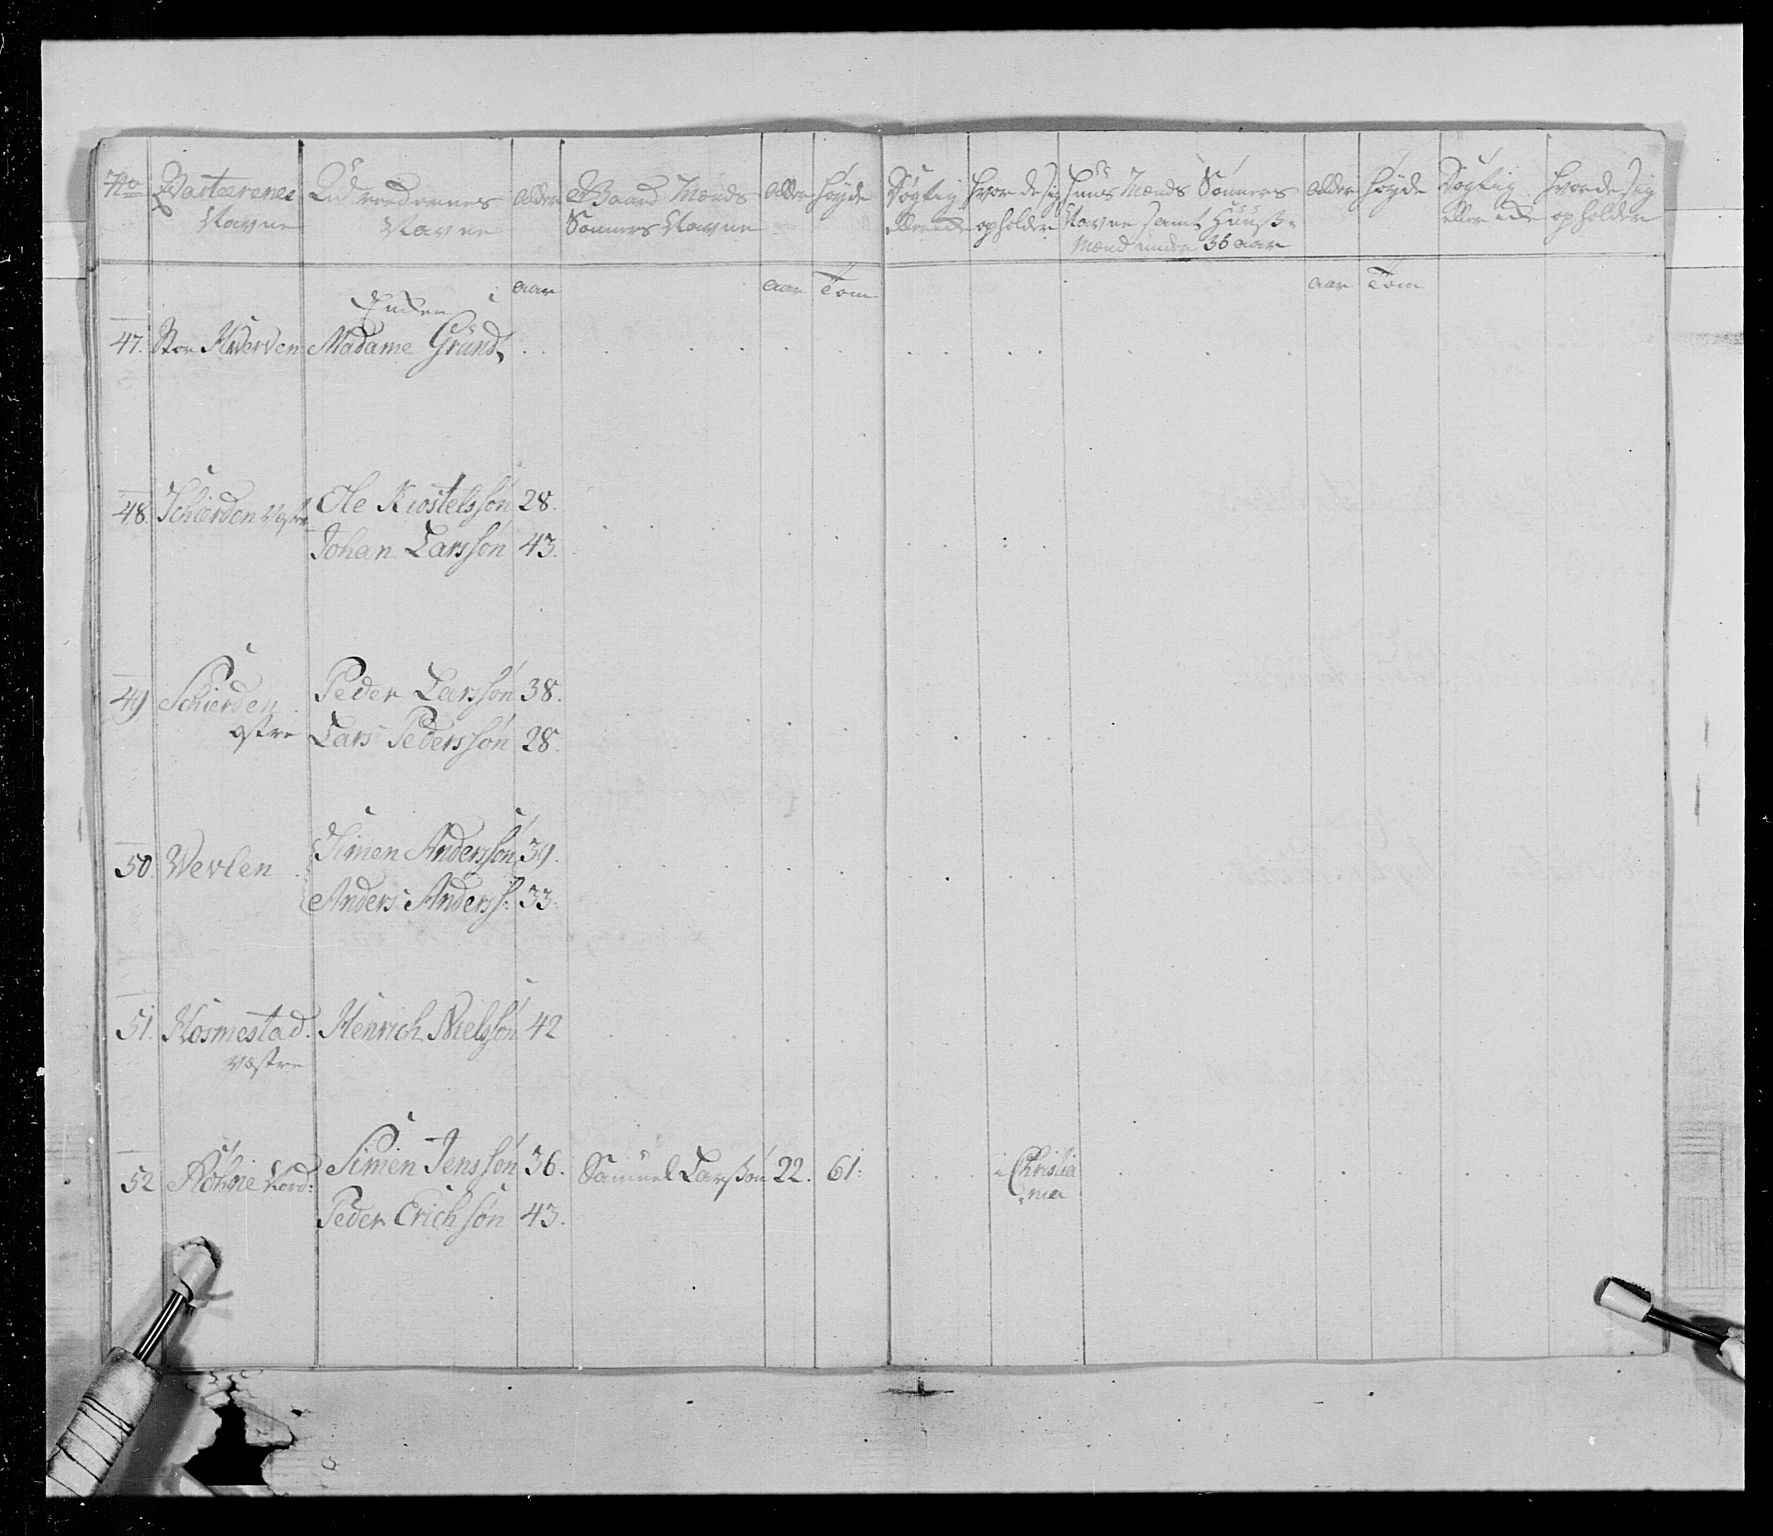 No Qvarteerenes Navne
Udreedernes Navne
Alder
Gaard Mænds Sønners Navne
Alder
Høyde
Dygtig eller eid
hvor de sig opholder
Huus Mænds Sønners Navne samt Huuss- Mænd under 36 aar
Alder
Høyde
Dygtig eller eid
hvor de sig opholder
aar aar Tom aar Tom
Enken
47. Stor Hverven Madame Gründ,
48. Schierden Vestre Ole Kiostelssøn 28.
Johan Larssøn 43.
49 Schierden Peder Larssøn 38.
østre Lars Pederssøn 28.
50. Wevlen Simen Anderssøn 39.
Anders Anderss: 33.
51. Kosmestad. Henrich Nielssøn 42
væstre
52 Røhne Nord: Simen Jenssøn 36. Samuel Larssøn 22. 61: i Christia
nia
Peder Erichsøn 43.